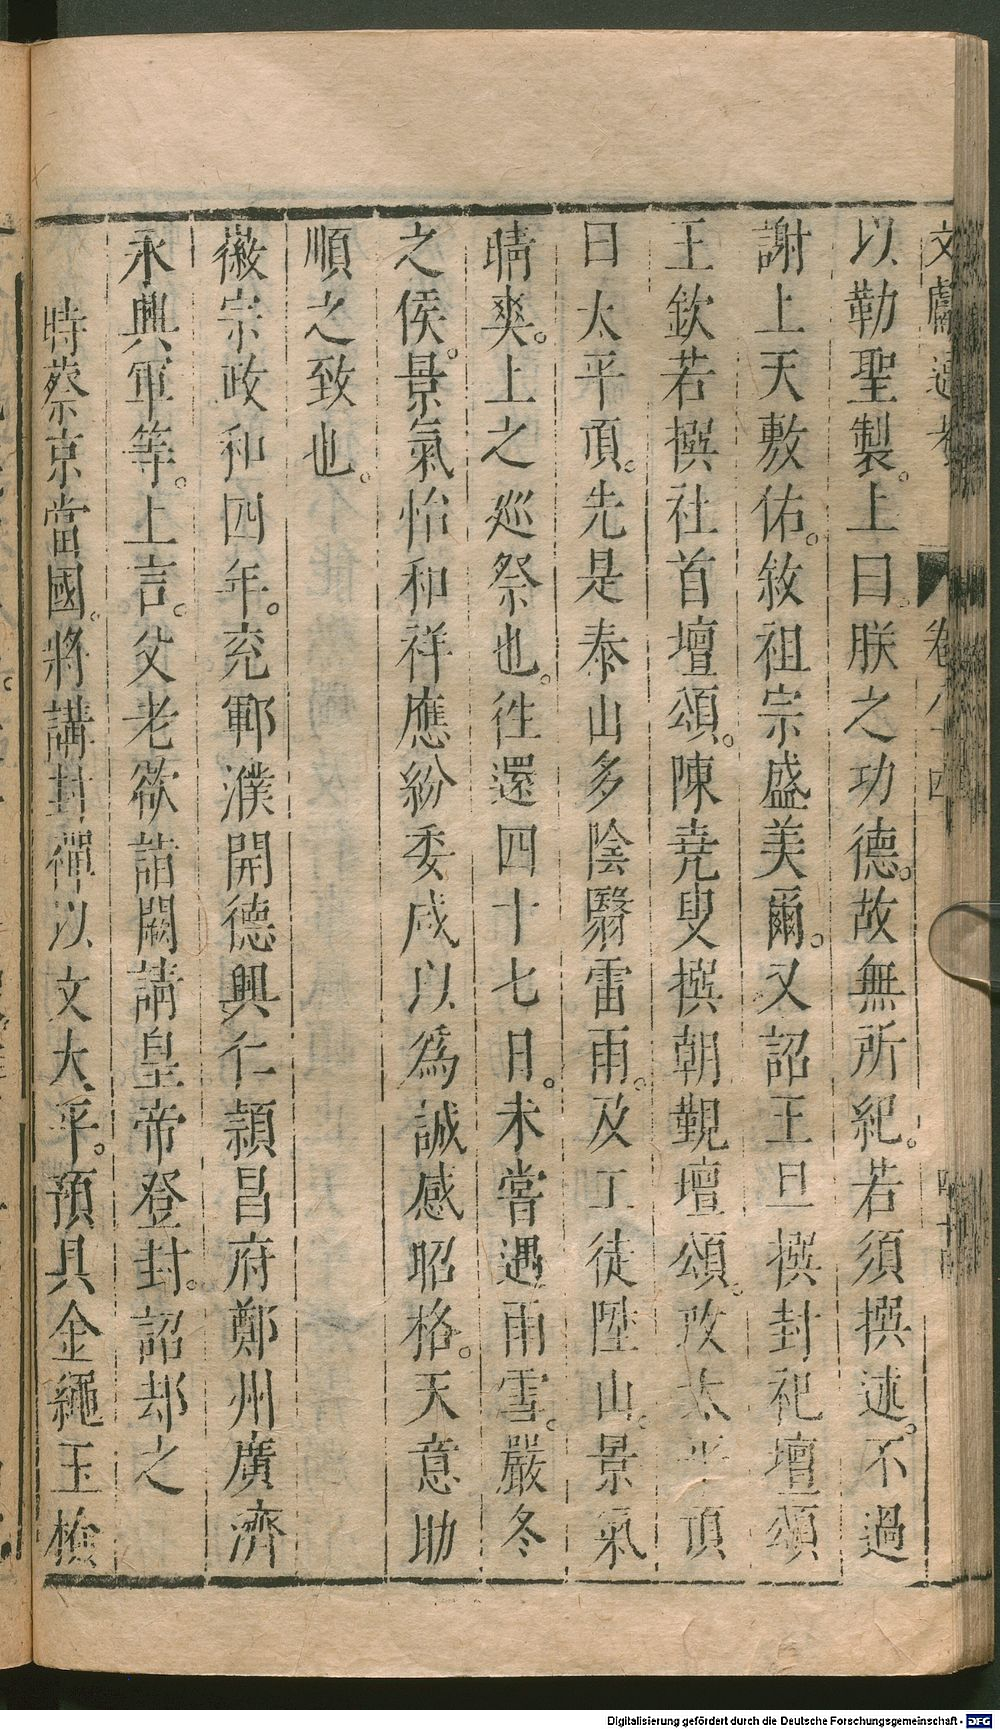 文獻通考 卷八十四
以勒聖製。上曰。朕之功德。故無所紀。若須撰述。不過
謝上天敷佑。敘祖宗盛美爾。又詔王旦撰封祀壇頌
王欽若撰社首壇頌。陳堯叟撰朝覲壇頌。改太平頂
曰太平頂。先是泰山多陰翳雷雨。及工徒陞山。景氣
晴爽。上之巡祭也。徃還四十七日。未嘗遇雨雪。嚴冬
之侯。景氣怡和祥應紛委咸以爲誠感昭格。天意助
順之致也。
徽宗政和四年。兖鄆濮開德興仁頴昌府鄭州廣濟
永興軍等。上言。父老欲詣闕請皇帝登封。詔却之
時蔡京當國。將講封禪以文太平。預具金繩玉檢
Digitalisierung gefördert durch die Deutsche Forschungsgemeinschaft - DFG